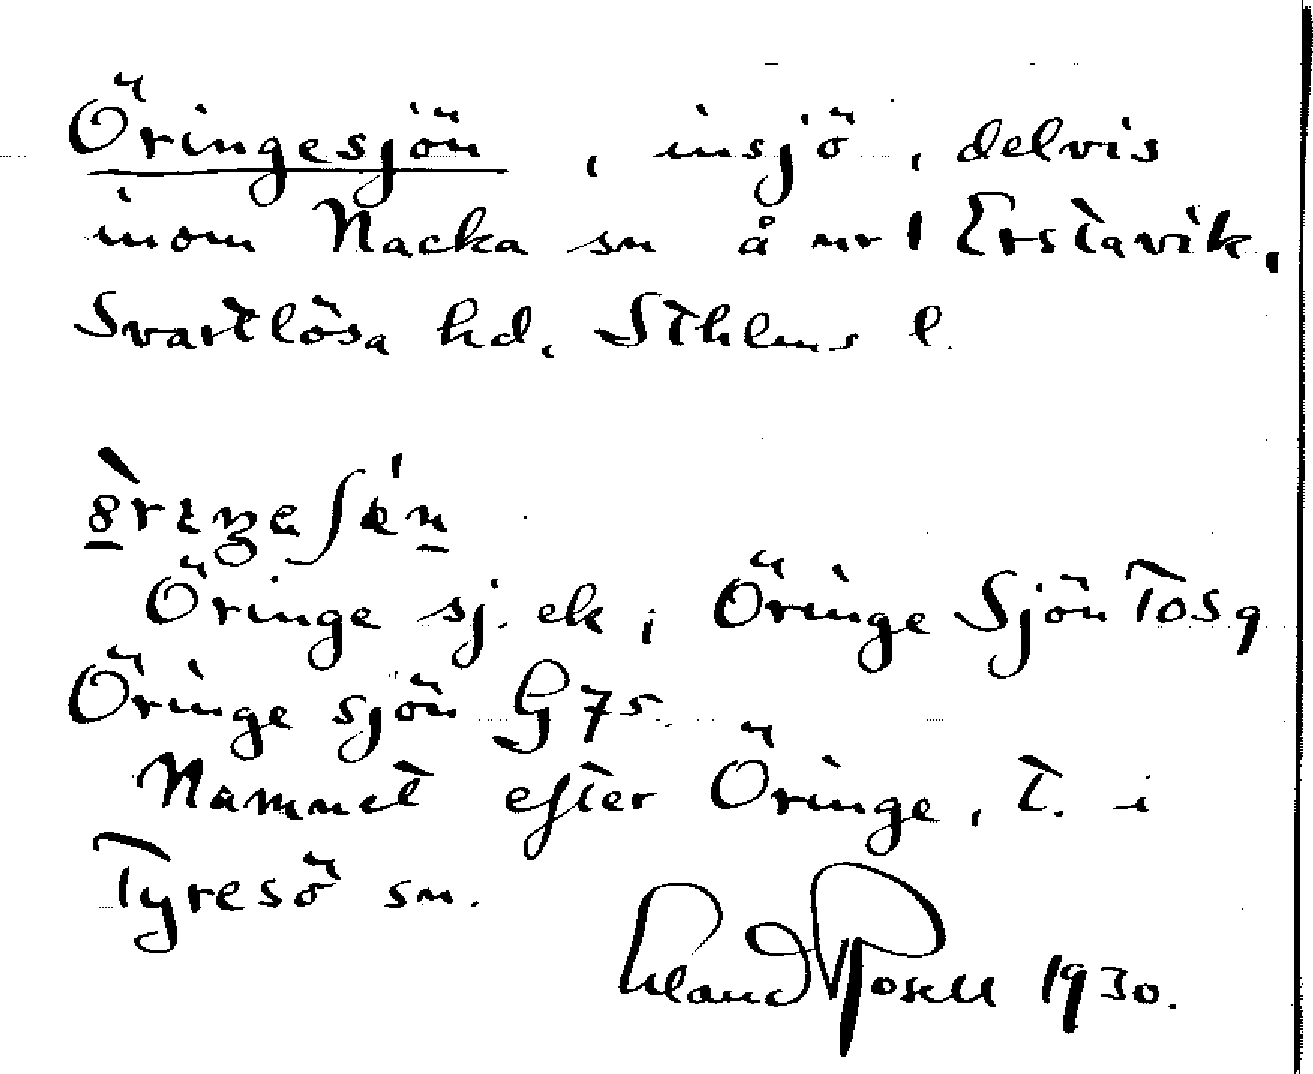 Öringesjön, insjö, delvis
inom Nacka sn å nr 1 Erstavik,
Svartlösa hd, Sthlms l.
Öringe sj. ek; Öringe Sjön Tosq
Öringe sjön G 75.
Namnet efter Öringe, T. i
Tyresö sn.
Erland Rosell 1930.